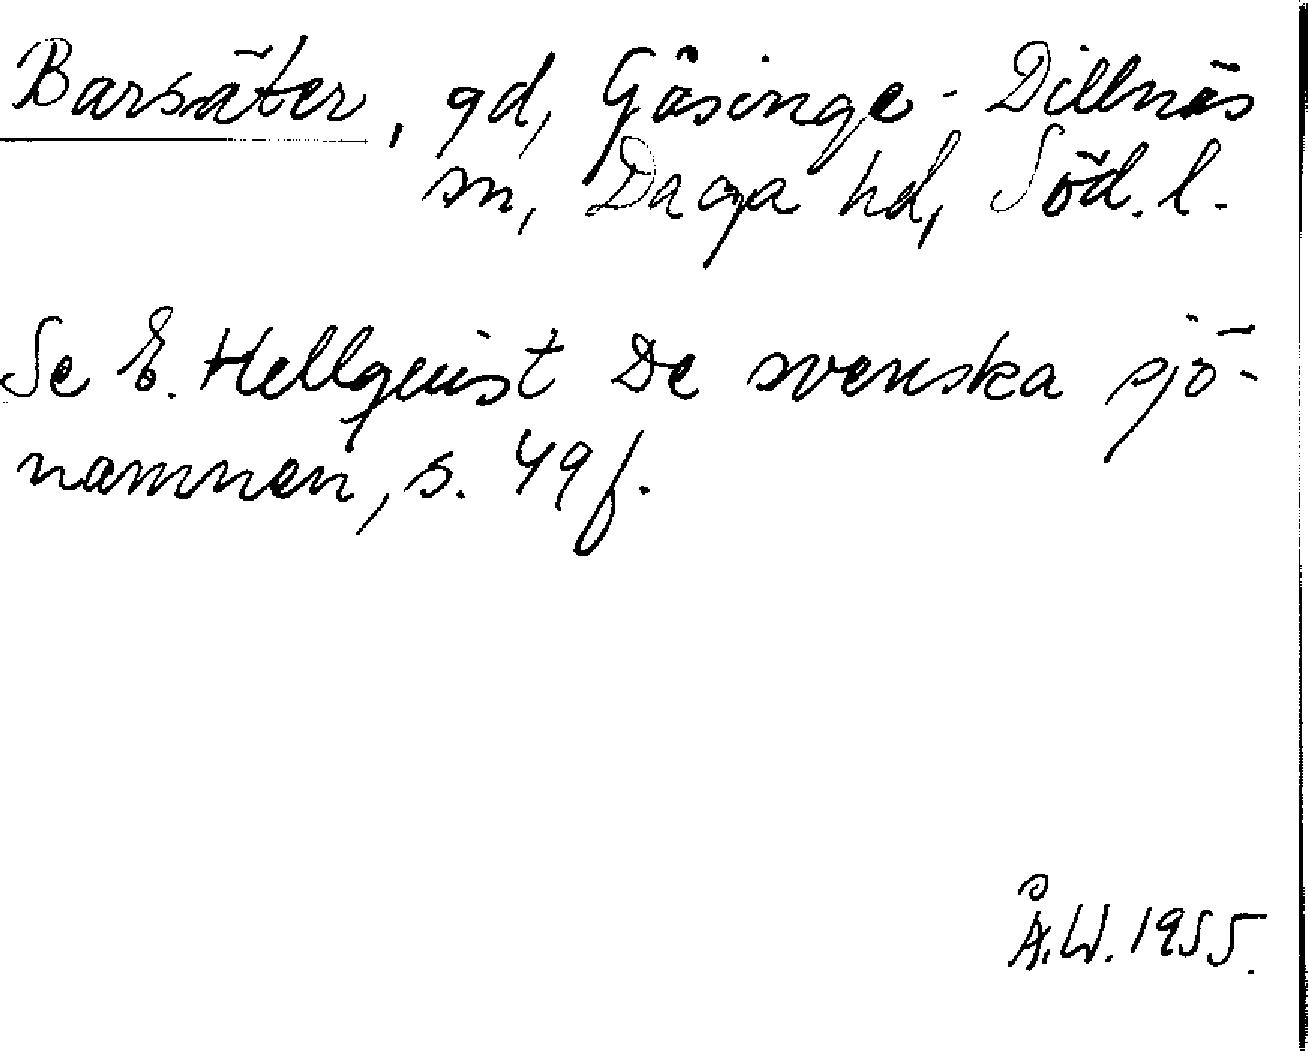 Barsäter, gd, Gåsinge-Dillnäs
sn, Daga hd, Söd. l.
Se E. Hellquist De svenska sjö-
namnen, s. 49 f.
Å.W. 1955.